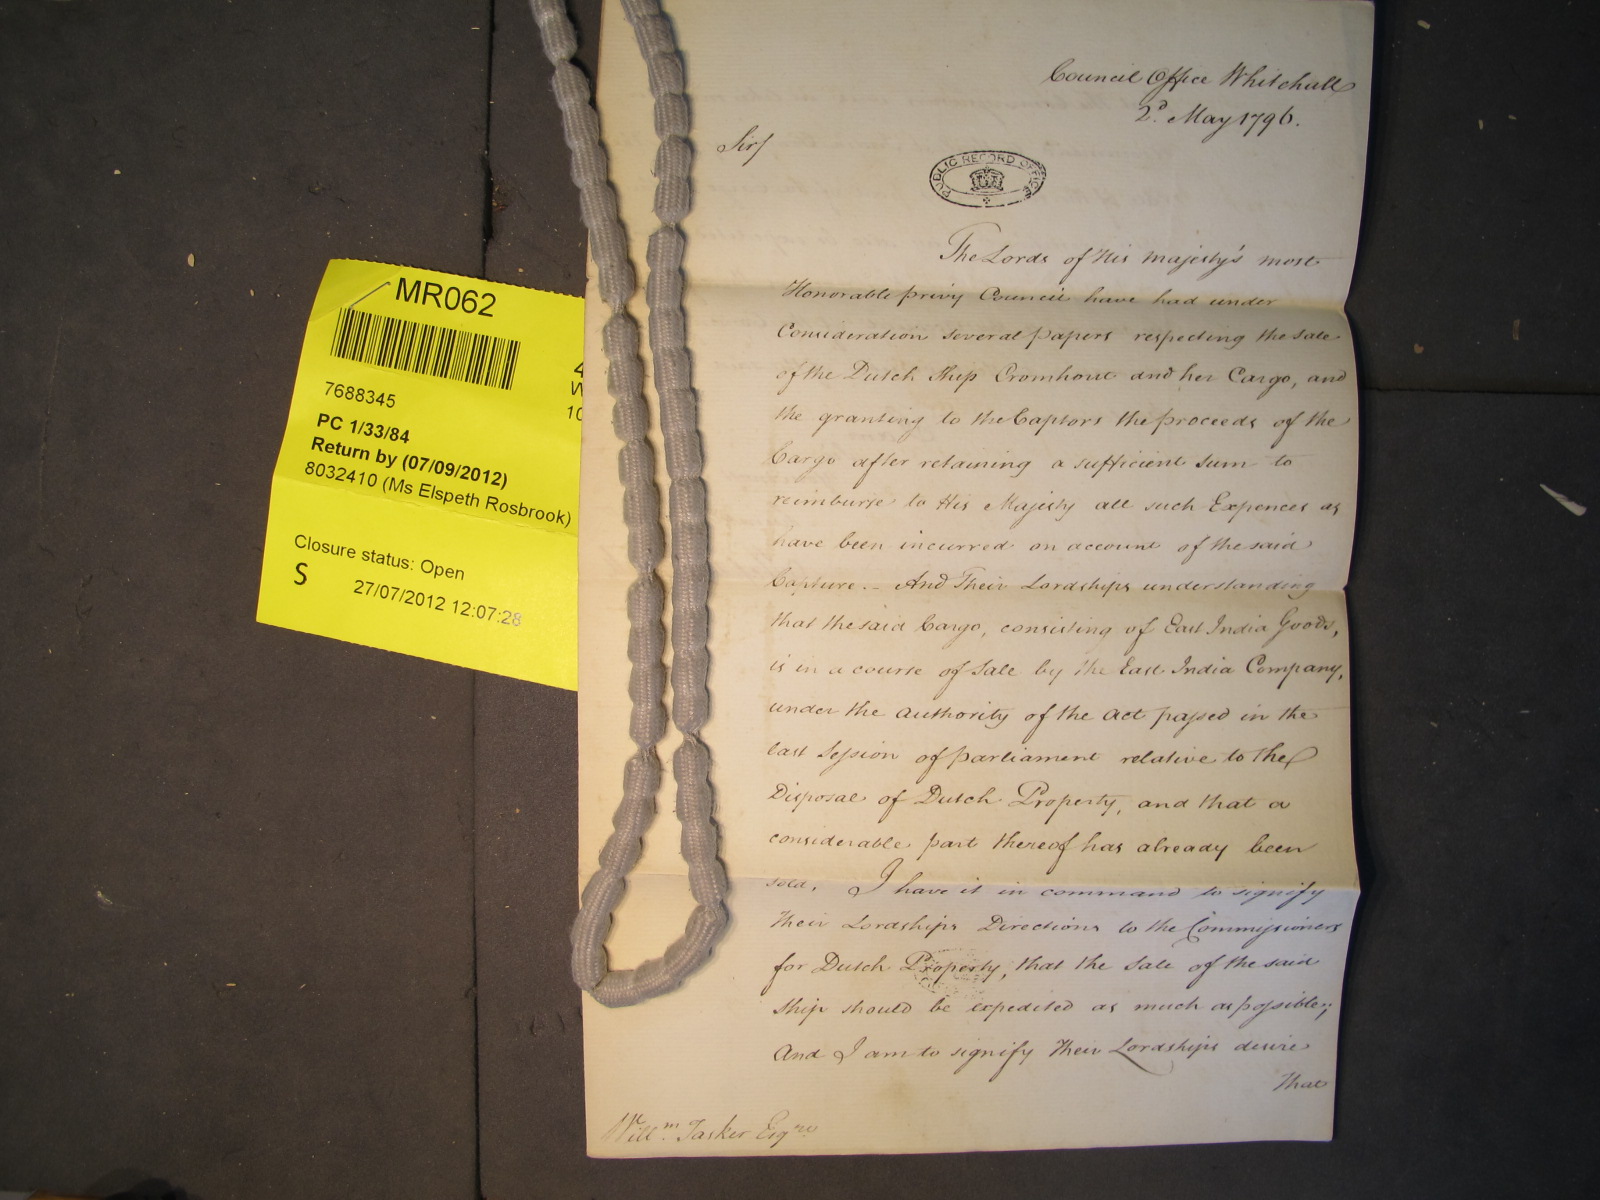 MR062
7688345
PC 1/33/84
Return by (07/09/2012)
8032410 (Ms Elspeth Rosbrook)
Closure status: Open
S
27/07/2012 12:07:28
4
W
10
Council Office Whitehall
2d. May 1796.
Sir/
PUBLIC RECORD OFFICE
The Lords of His Majesty's most
Honorable privy Council have had under
Consideration several papers respecting the sale
of the Dutch Ship Cromhout and her Cargo, and
the granting to the Captors the proceeds of the
Cargo after retaining a sufficient sum to
reimburse to His Majesty all such Expences as
have been incurred on account of the said
Capture.– And Their Lordships understanding
that the said Cargo, consisting of East India Goods,
is in a course of Sale by the East India Company,
under the authority of the Act passed in the
last Session of parliament relative to the
Disposal of Dutch Property, and that a
considerable part thereof has already been
sold, I have it in command to signify
Their Lordships Directions to the Commissioners
for Dutch Property, that the Sale of the said
Ship should be expedited as much as possible;
And I am to signify Their Lordships desire
that
Willm. Tasker Esqre